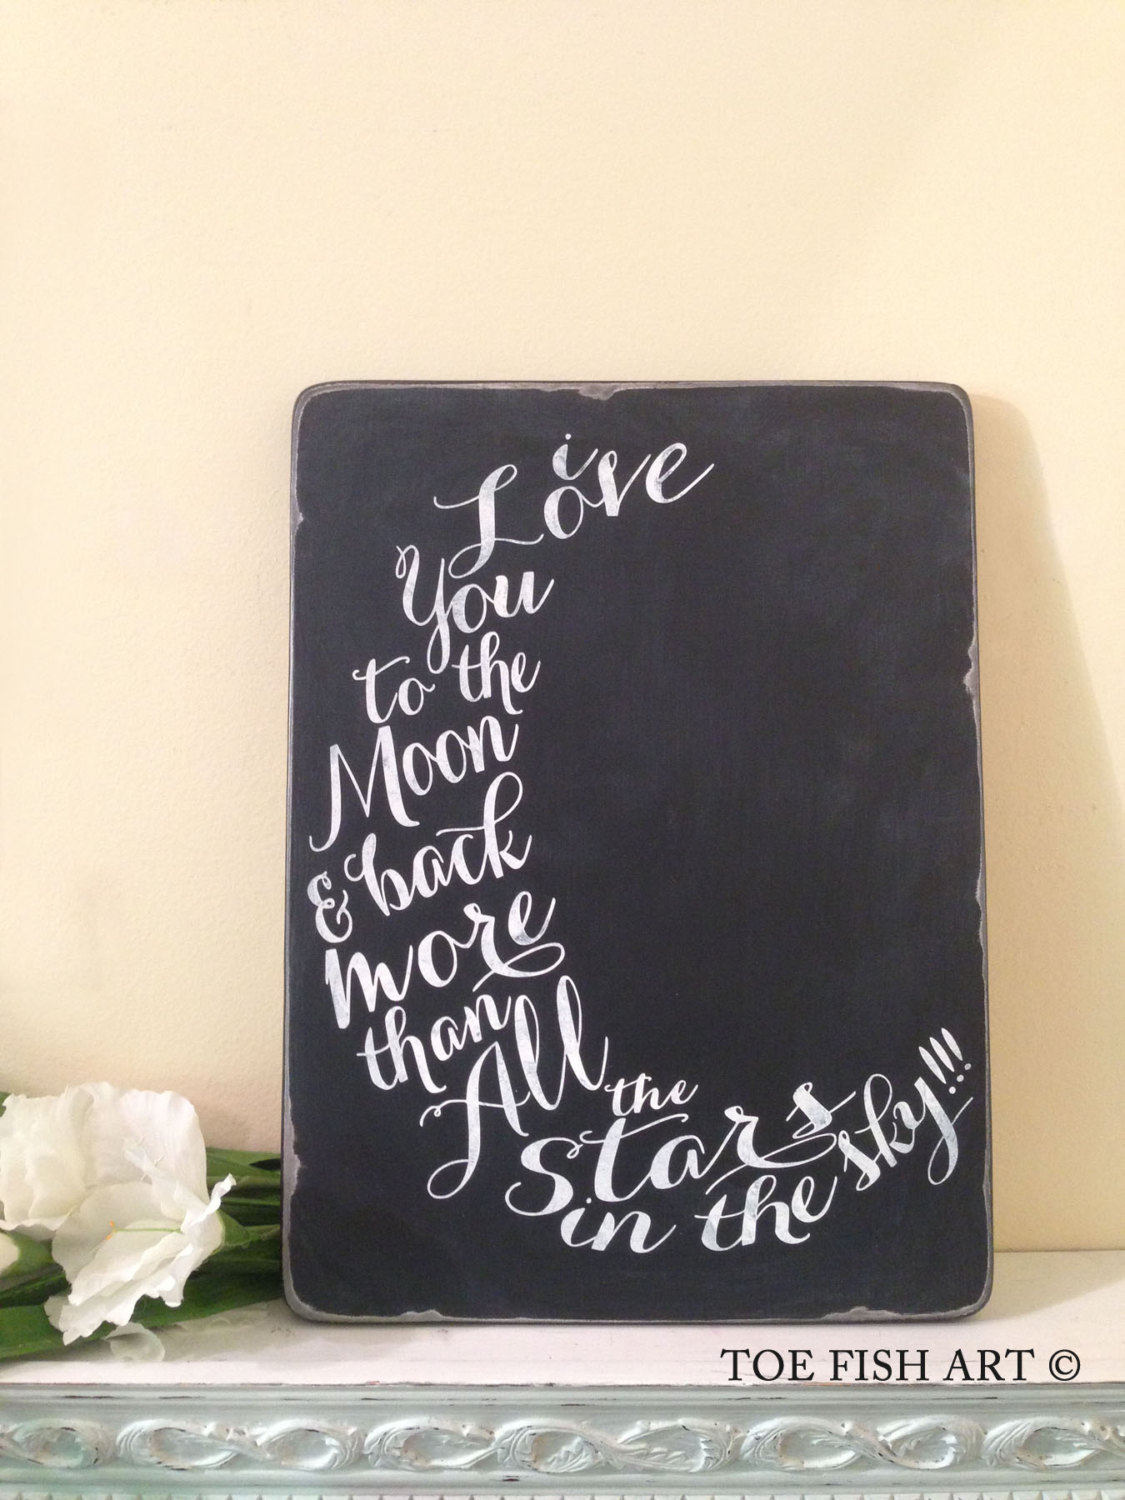 i
Love
You
to the
Moon
& back
more
than
All
the
Stars
in the sky!!!
TOE FISH ART ©